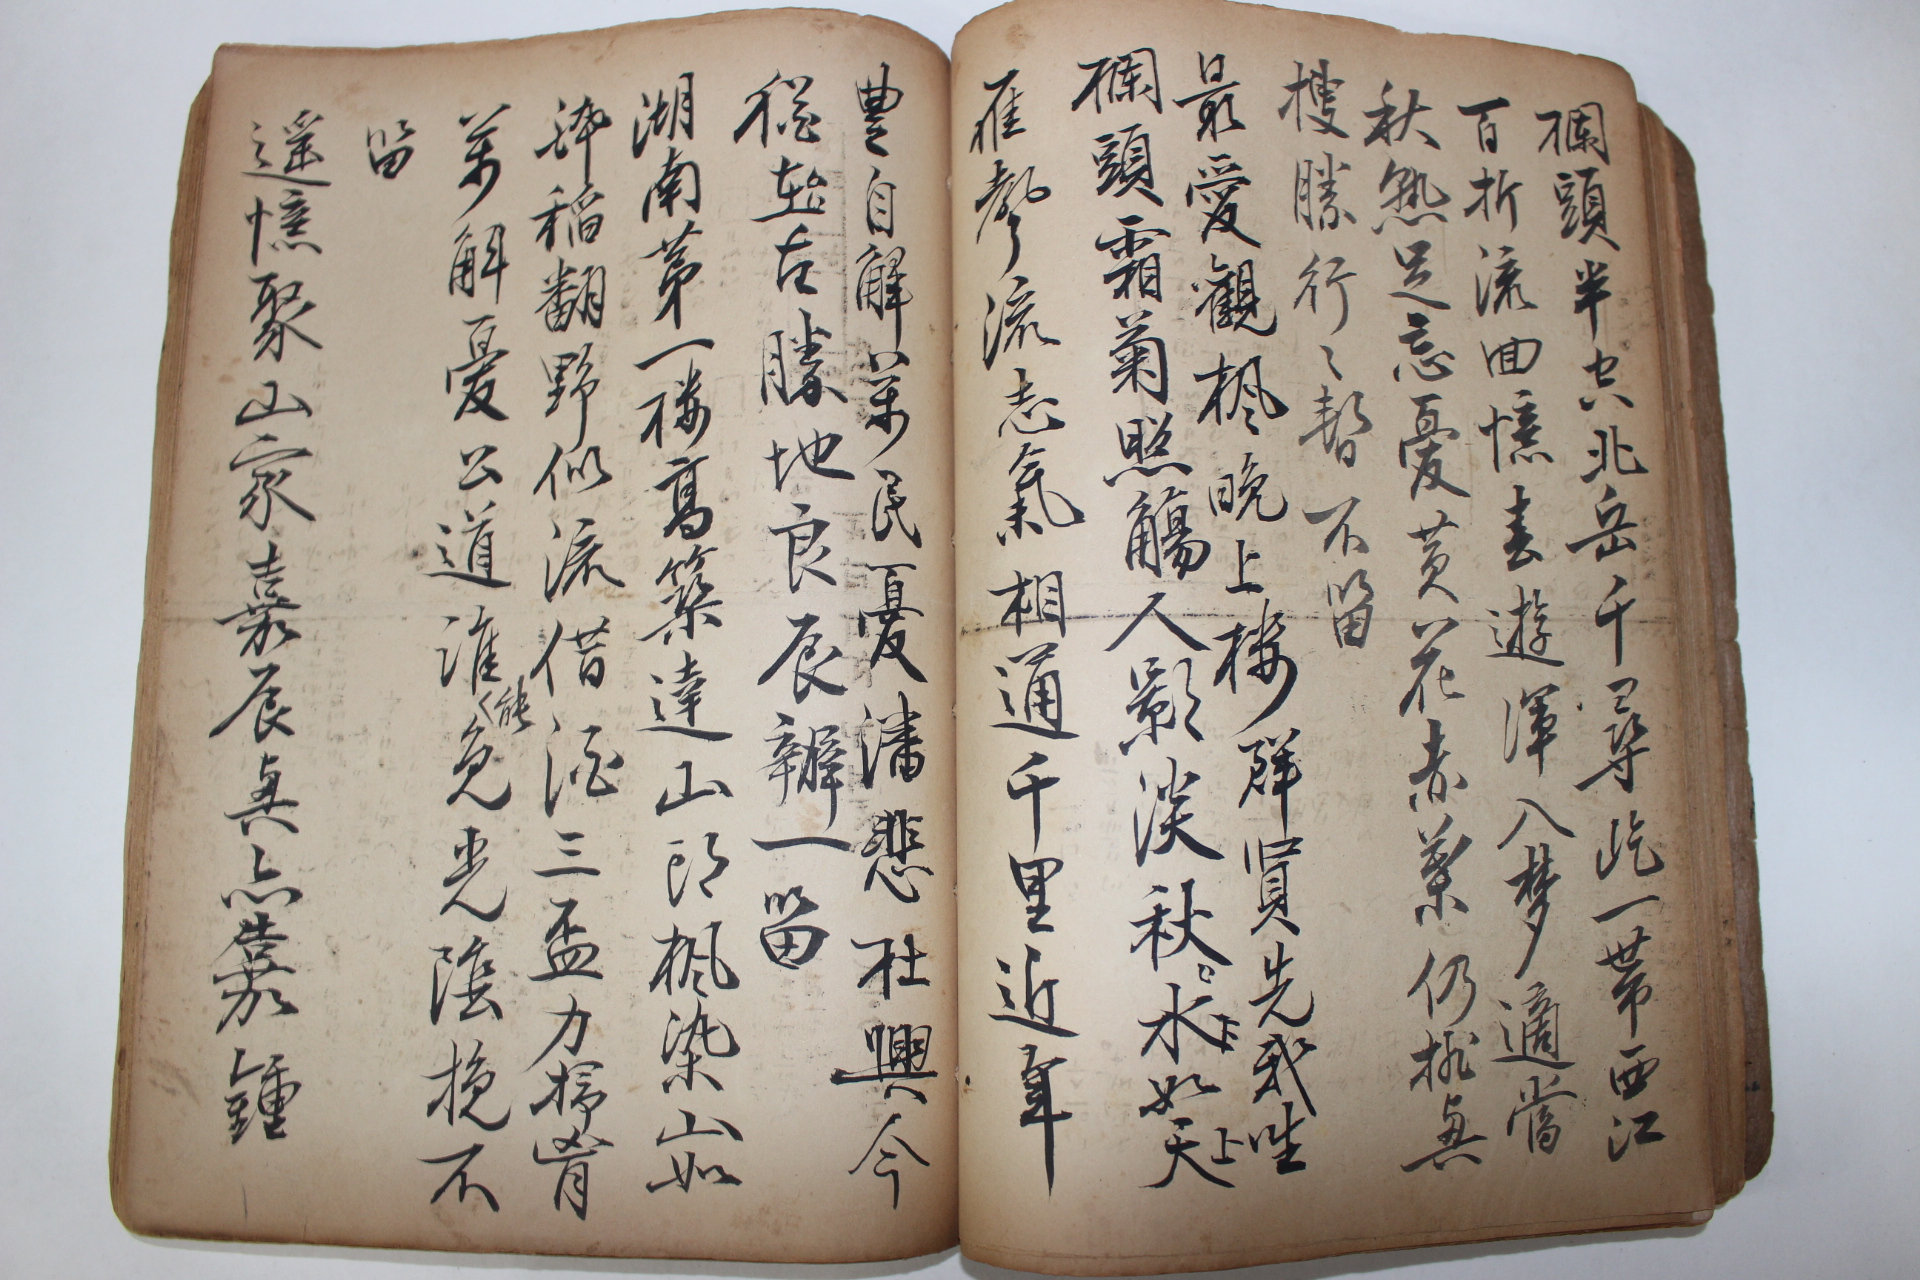 欄頭半空北岳千尋屹一帶西江
百折流回憶春遊渾入夢適當
秋熟足忘憂黃花赤葉仍挑興
搜勝行〻暫不留
最愛觀楓晩上樓群賢先我坐上
欄頭霜菊照觴人影淡秋水如天
雁聲流志氣相通千里近年
豊自解萬民憂潘悲杜興今
猶在古勝地良辰辦一留
湖南第一樓高築達山頭楓染山如
醉稻翻野似流借酒三盃力撐胷
萬斛憂公道誰能免光陰挽不
留
遥憶聚山家嘉辰興点嘉鍾